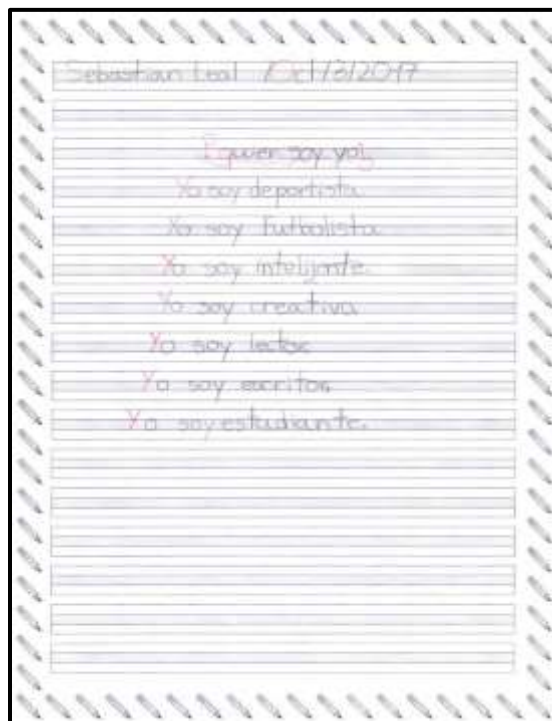 Sebastian Leal /Oct/3/2017
¿quien soy yo?
Yo soy deportista.
Yo soy Futbolista
Yo soy intelijente.
Yo soy creativo
Yo soy lector.
Yo soy escritor.
Yo soy estudiante.